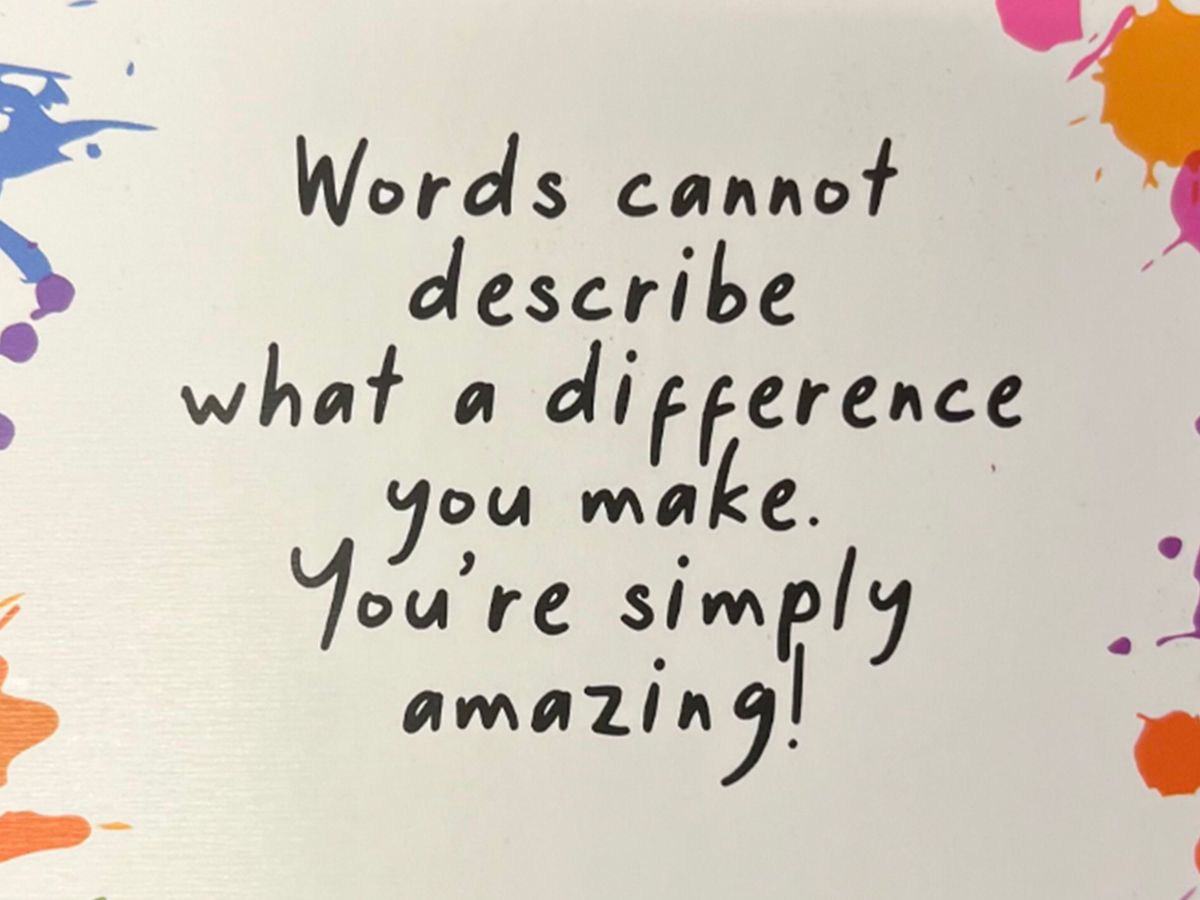 Words cannot
describe
what a difference
you make.
You're simply
amazing!